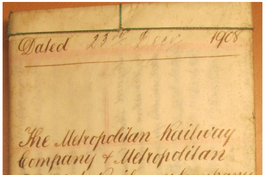 Dated 23rd 1908
The Metropolitan Railway
Company & Metropolitan